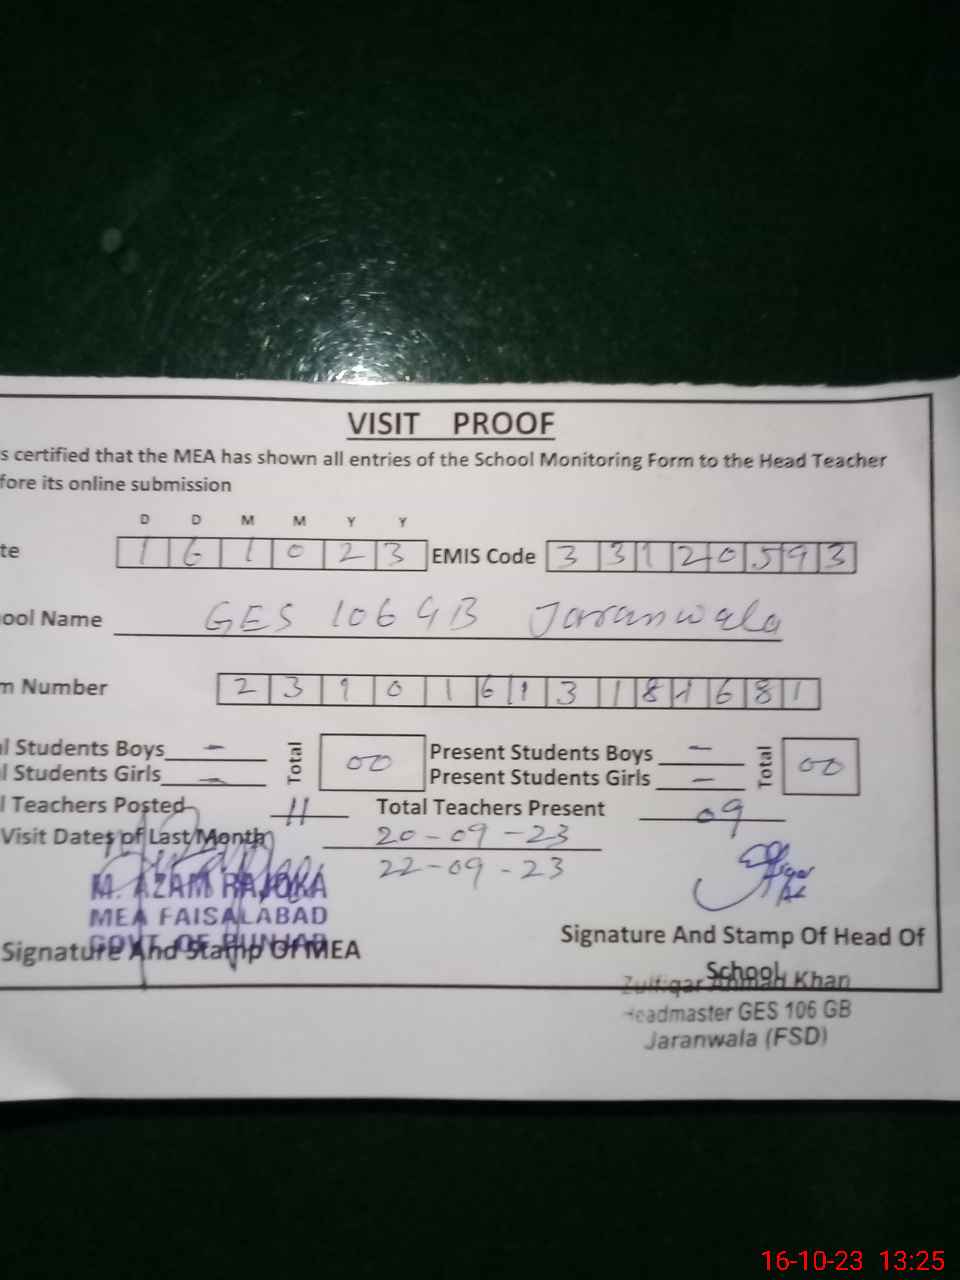 VISIT PROOF
s certified that the MEA has shown all entries of the School Monitoring Form to the Head Teacher
fore its online submission
D D M M Y Y
te 1 6 1 0 2 3 EMIS Code 3 3 1 2 0 5 9 3
ool Name GES 106 GB Jaranwala
m Number 2 3 1 0 1 6 1 3 1 8 1 6 8 1
l Students Boys – Total 00 Present Students Boys – Total 00
l Students Girls – Present Students Girls –
l Teachers Posted 11 Total Teachers Present 09
Visit Dates of Last Month 20-09-23
22-09-23
M. AZAM RAJOKA
MEA FAISALABAD
GOVT OF PUNJAB
Signature And Stamp Of MEA
Signature And Stamp Of Head Of
School
Zulfiqar Ahmad Khan
Headmaster GES 106 GB
Jaranwala (FSD)
16-10-23 13:25